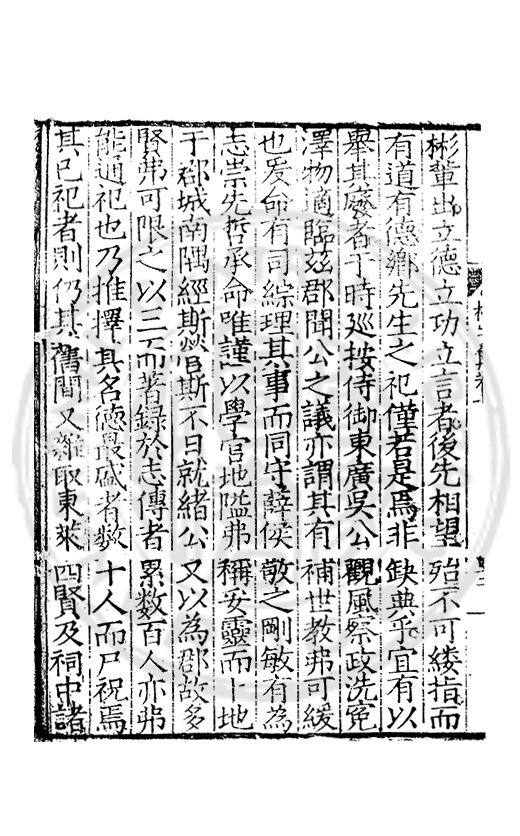 彬輩出立德立功立言者後先相望殆不可縷指而
有道有德鄉先生之祀僅若是焉非缺典乎宜有以
舉其廢者于時廵按侍御東廣吳公觀風察政洗冤
澤物適臨茲郡聞公之議亦謂其有補世教弗可緩
也爰命有司綜理其事而同守薛侯敬之剛敏有為
志崇先哲承命唯謹以學官地隘弗稱妥靈而卜地
于郡城南隅經斯營斯不日就緒公又以為郡故多
賢弗可限之以三而著録於志傳者累数百人亦弗
能通祀也乃推擇其名德最盛者数十人而尸祝焉
其已祀者則仍其舊間又雜取東萊四賢及祠中諸